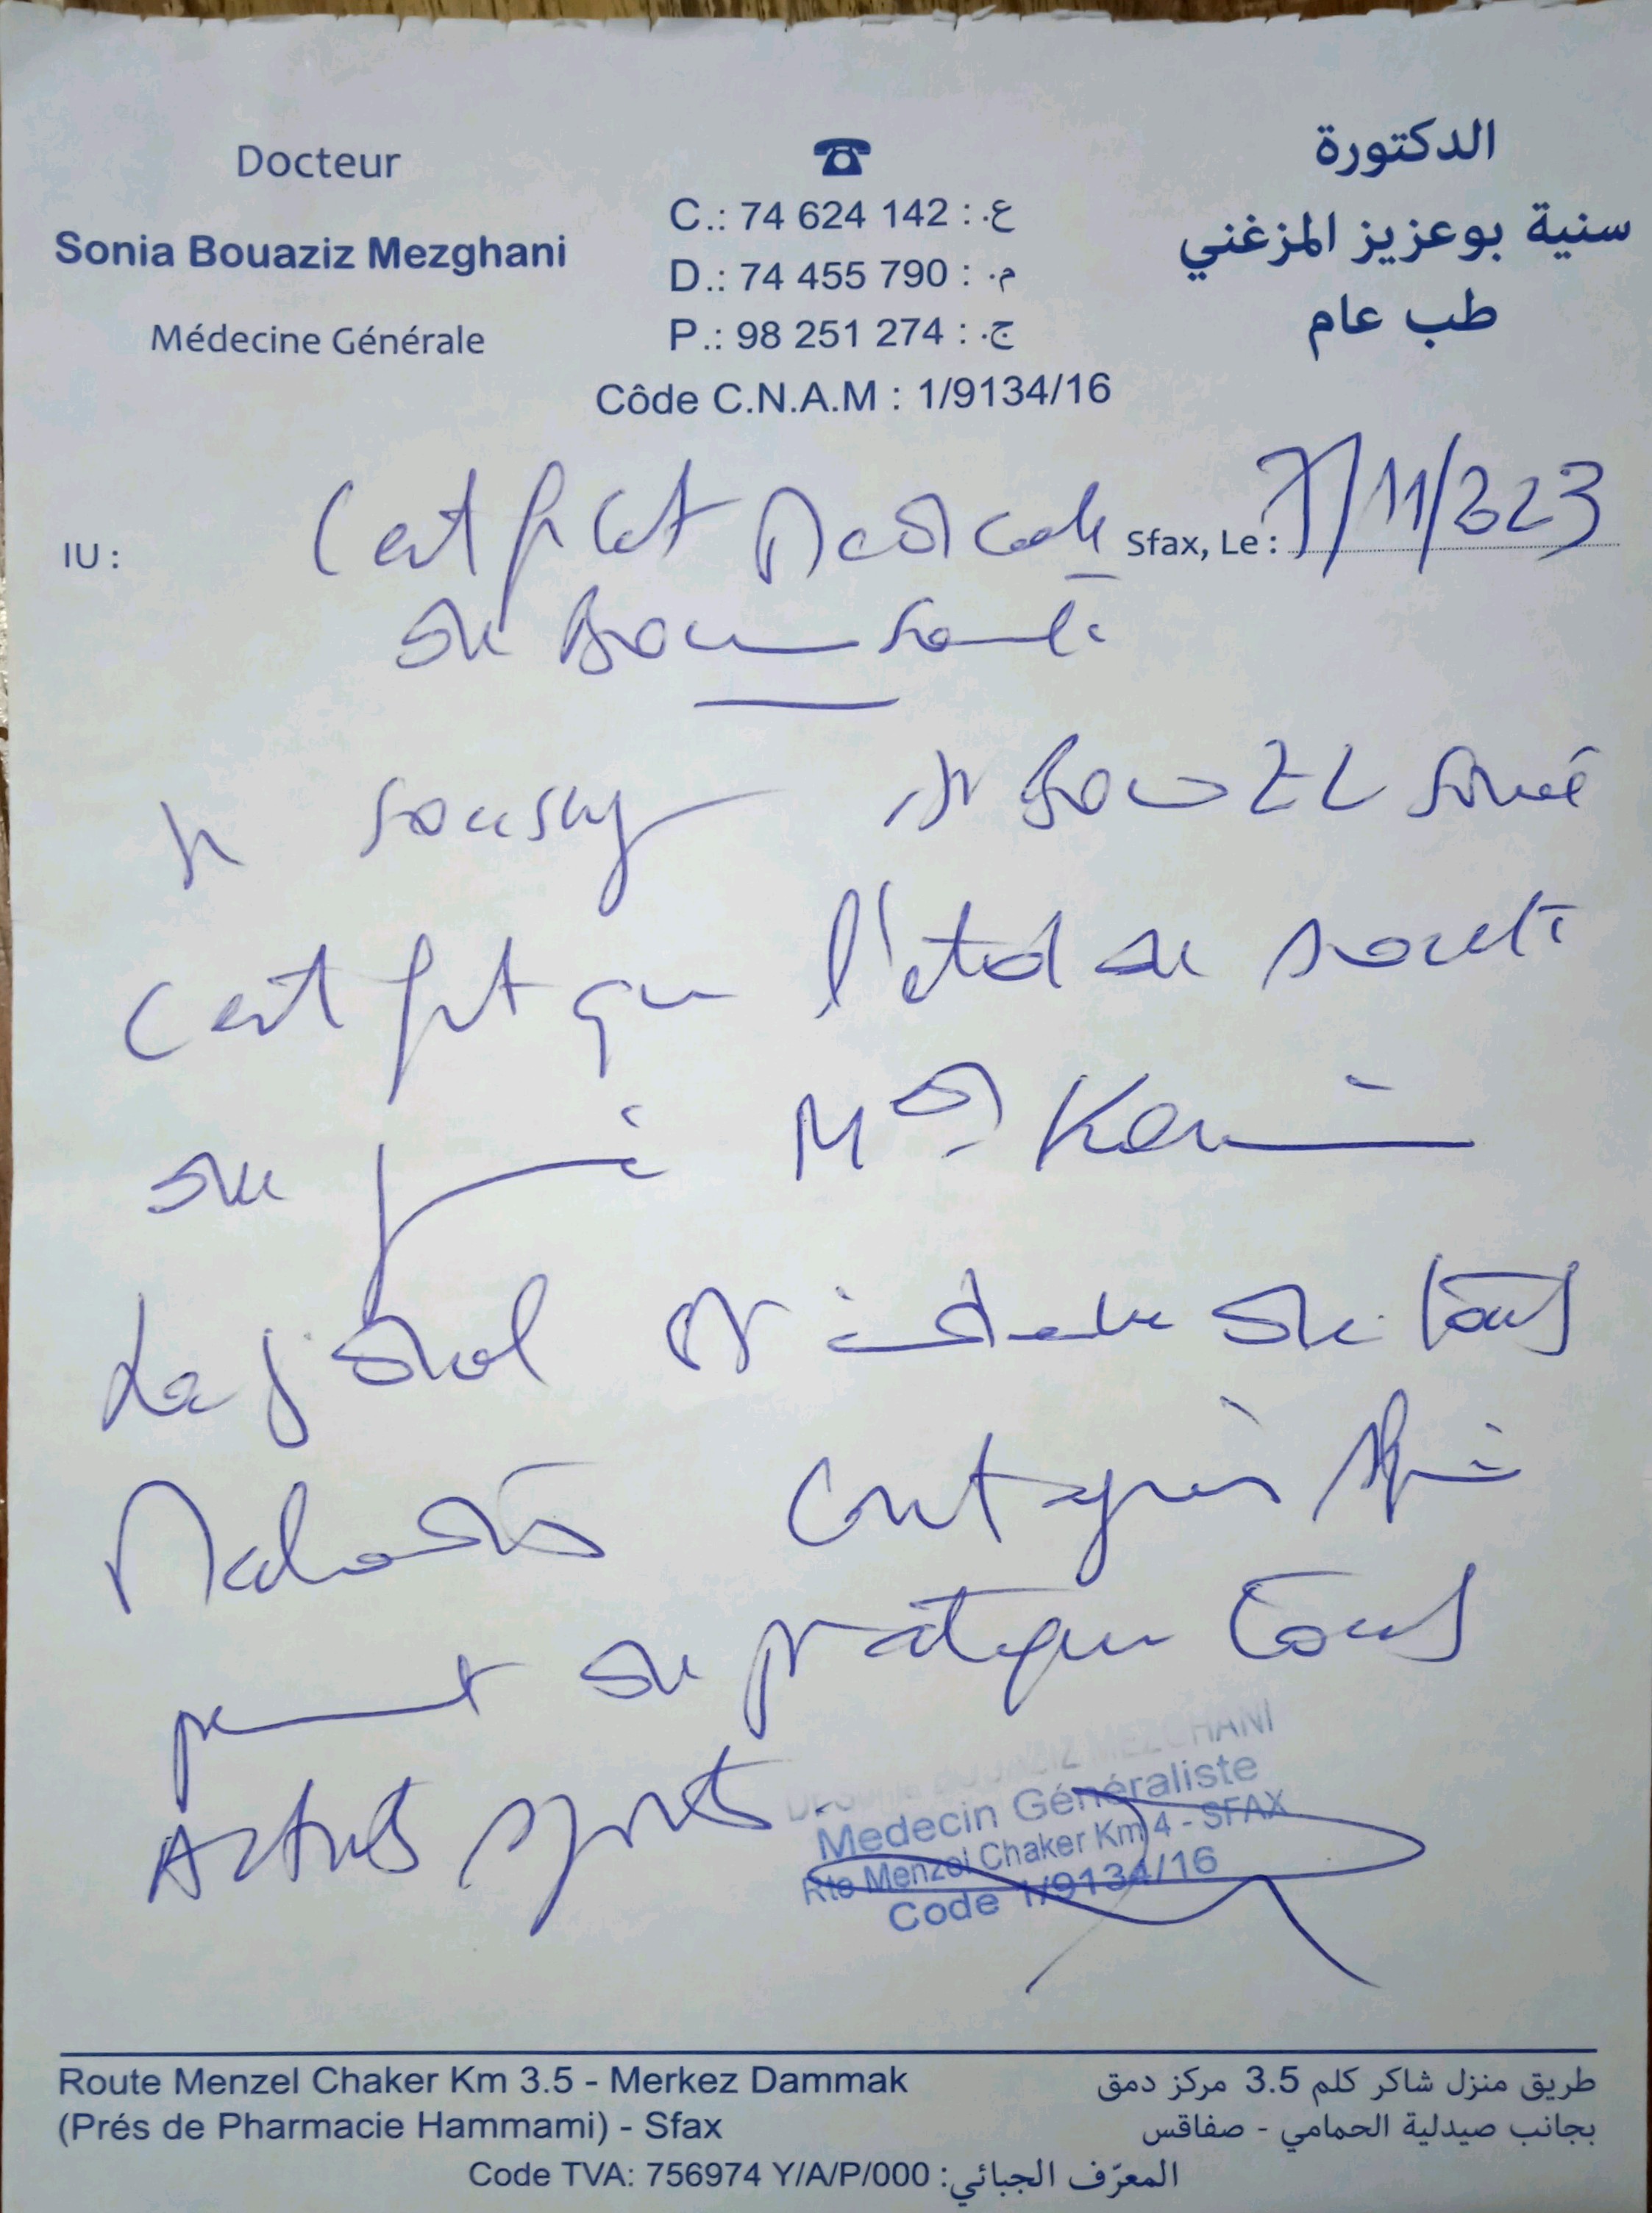 Docteur
Sonia Bouaziz Mezghani
Médecine Générale
C.: 74 624 142 : ع.
D.: 74 455 790 : م.
P.: 98 251 274 : ج.
Côde C.N.A.M : 1/9134/16
الدكتورة
سنية بوعزيز المزغني
طب عام
IU :
Sfax, Le : 7/11/2023
Certificat Medicale
de Bonne Santé
Je soussigné Dr Bouaziz Sonia
Certifit que l'état de santé
de Med Karim
est indemne de tous
Maladies contagieuses
permet de pratiquer tous
Activités sportives
Dr Sonia BOUAZIZ MEZGHANI
Medecin Généraliste
Rte Menzel Chaker Km 4 - SFAX
Code 1/9134/16
Route Menzel Chaker Km 3.5 - Merkez Dammak
(Prés de Pharmacie Hammami) - Sfax
طريق منزل شاكر كلم 3.5 مركز دمق
بجانب صيدلية الحمامي - صفاقس
Code TVA: 756974 Y/A/P/000 : المعرّف الجبائي